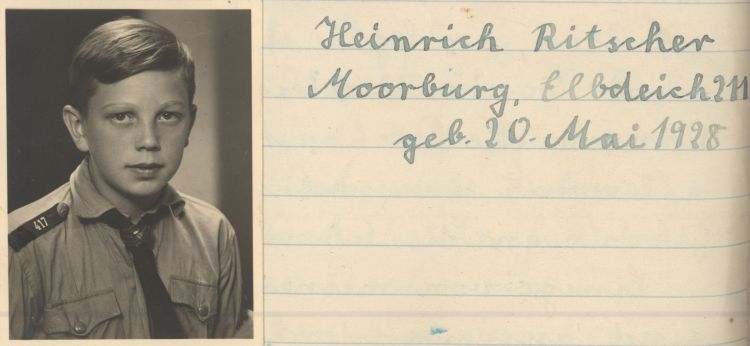 417
Heinrich Ritscher
Moorburg, Elbdeich 211
geb. 20. Mai 1928